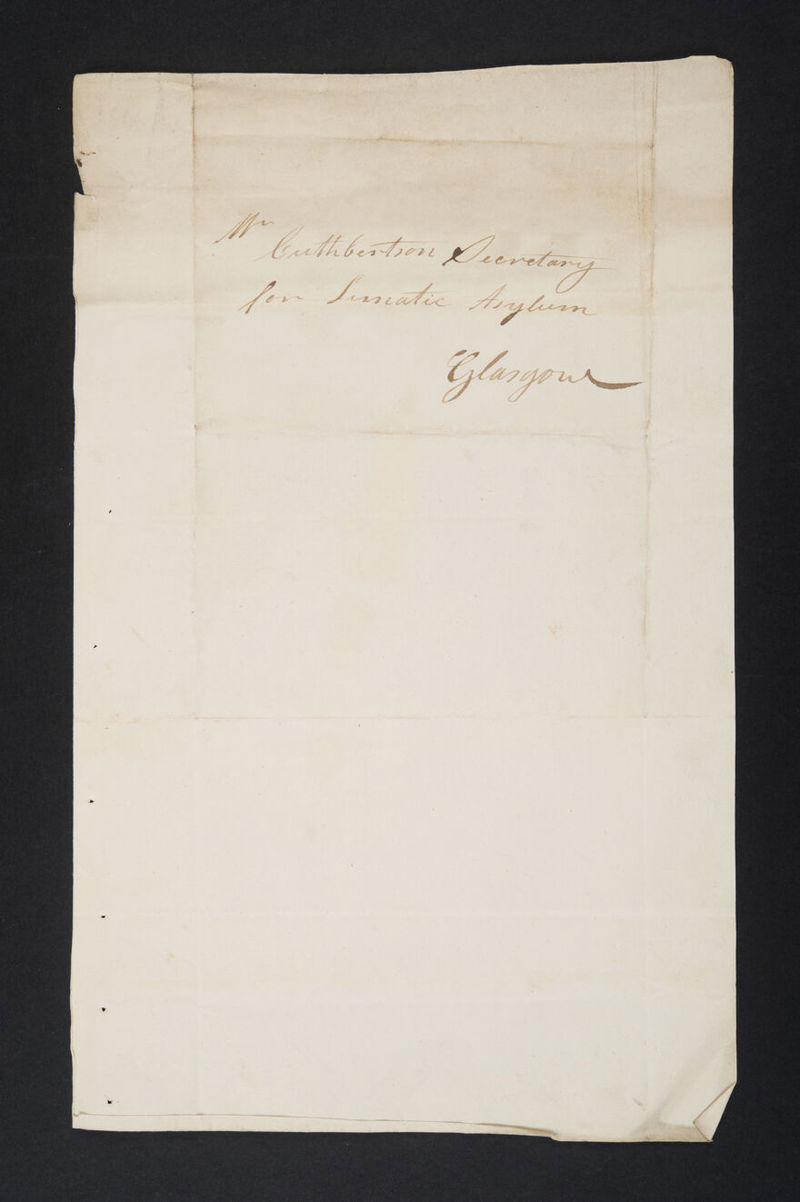 Mr
Cuthbertson Secretary
for Lunatic Asylum
Glasgow